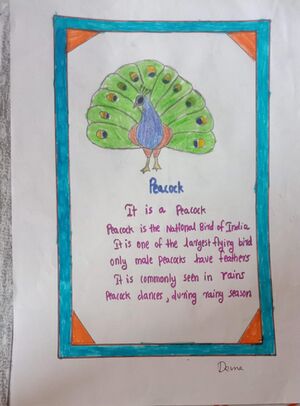 Peacock
It is a Peacock
Peacock is the National Bird of India
It is one of the largest flying bird
only male peacocks have feathers
It is commonly seen in rains
Peacock dances, during rainy season